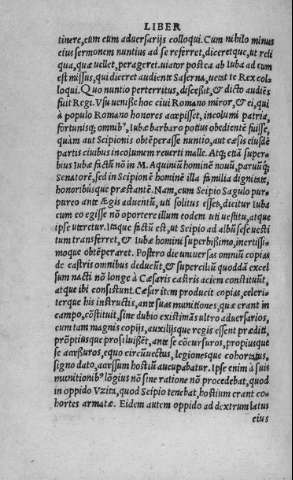 LIBER
tinere, cum eum aduersarijs colloqui. Cum nihilo minus
eius sermonem nuntius ad se referret, diceretque, ut reli
qua, quæ uellet, perageret. uiator postea ab Iuba ad eum
est missus, qui diceret audiente Saserna, uetat te Rex collo
loqui. Quo nuntio perterritus, discessit, & dicto audiẽs
fuit Regi. Vsu uenisse hoc ciui Romano miror, & ei, qui
à populo Romano honores accepisset, incolumi patria,
fortunisq; omnib', Iubæ barbaro potius obedientẽ fuisse,
quàm aut Scipionis obtẽperasse nuntio, aut cæsis eiusdẽ
partis ciuibus incolumem reuerti malle. Atq; etiã superb
bius Iubæ factũ nõ in M. Aquiniũ hominẽ nouũ, paruũq;
Senatorẽ, sed in Scipionẽ hominẽ illa familia dignitate,
honoribusque præstantẽ. Nam, cum Scipio Sagulo pur=
pureo ante Regis aduentũ, uti solitus esset, dicitur Iuba
cum eo egisse nõ oportere illum eodem uti uestitu, atque
ipse uteretur. Itaque factũ est, ut Scipio ad albũ sese uesti
tum transferret, & Iubæ homini superbissimo, inertissi=
moque obtẽperaret. Postero die uniuersas omniũ copias
de castris omnibus deducũt, & superciliũ quoddã excel
sum nacti nõ longe à Cæsaris castris aciem cõstituũt,
atque ibi consistunt. Cæsar item producit copias, celeri=
terque his instructis, ante suas munitiones, quæ erant in
campo, cõstituit, sine dubio existimãs ultro aduersarios,
cum tam magnis copijs, auxilijsque regis essent præditi,
prõptiusque prosiluissẽt, ante se cõcursuros, propiusque
se accessuros. equo circũuectus, legionesque cohortatus,
signo dato, accessum hostiũ aucupabatur. Ipse enim à suis
munitionib' lõgius nõ sine ratione nõ procedebat, quod
in oppido Vzita, quod Scipio tenebat, hostium erant co=
hortes armatæ. Eidem autem oppido ad dextrum latus
eius